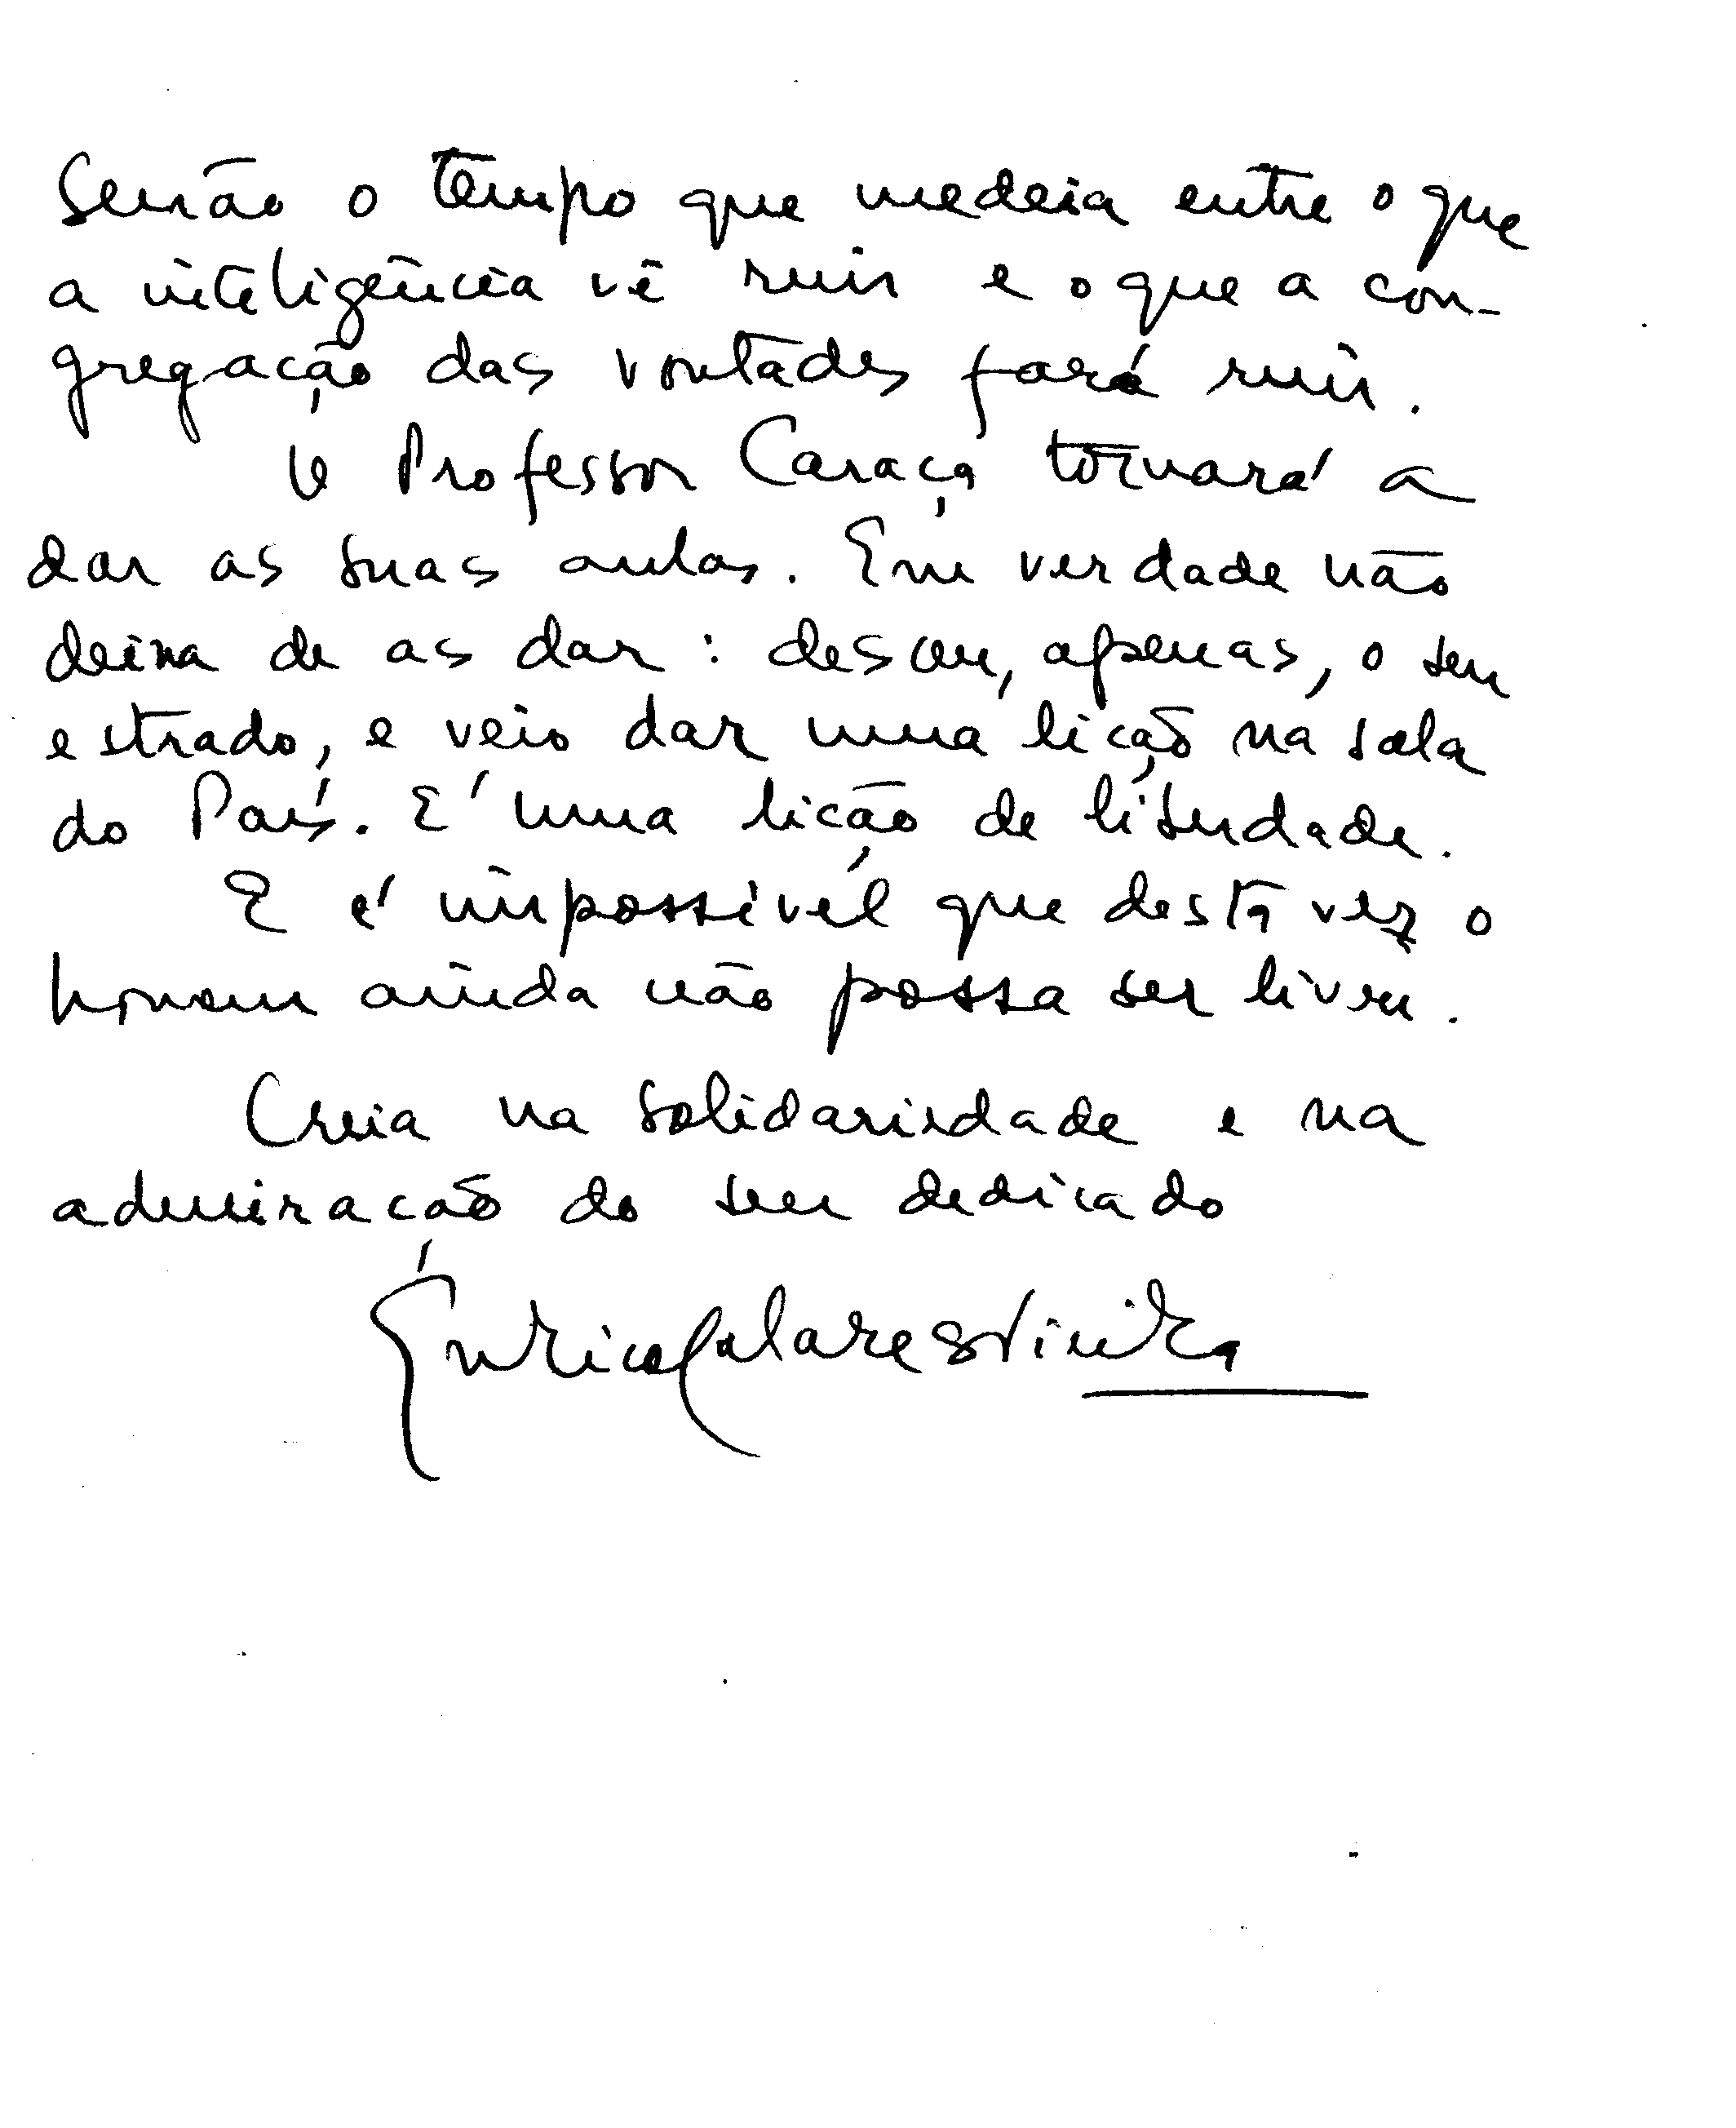 senão o tempo que medeia entre o que
a inteligência vê ruir e o que a con-
gregação das vontades fará ruir.
O Professor Caraça tornará a
dar as suas aulas. Em verdade não
deixa de as dar: desceu, apenas, o seu
estrado, e veio dar uma lição na sala
do País. É uma lição de liberdade.
E é impossível que desta vez o
homem ainda não possa ser livre.
Creia na solidariedade e na
admiração do seu dedicado